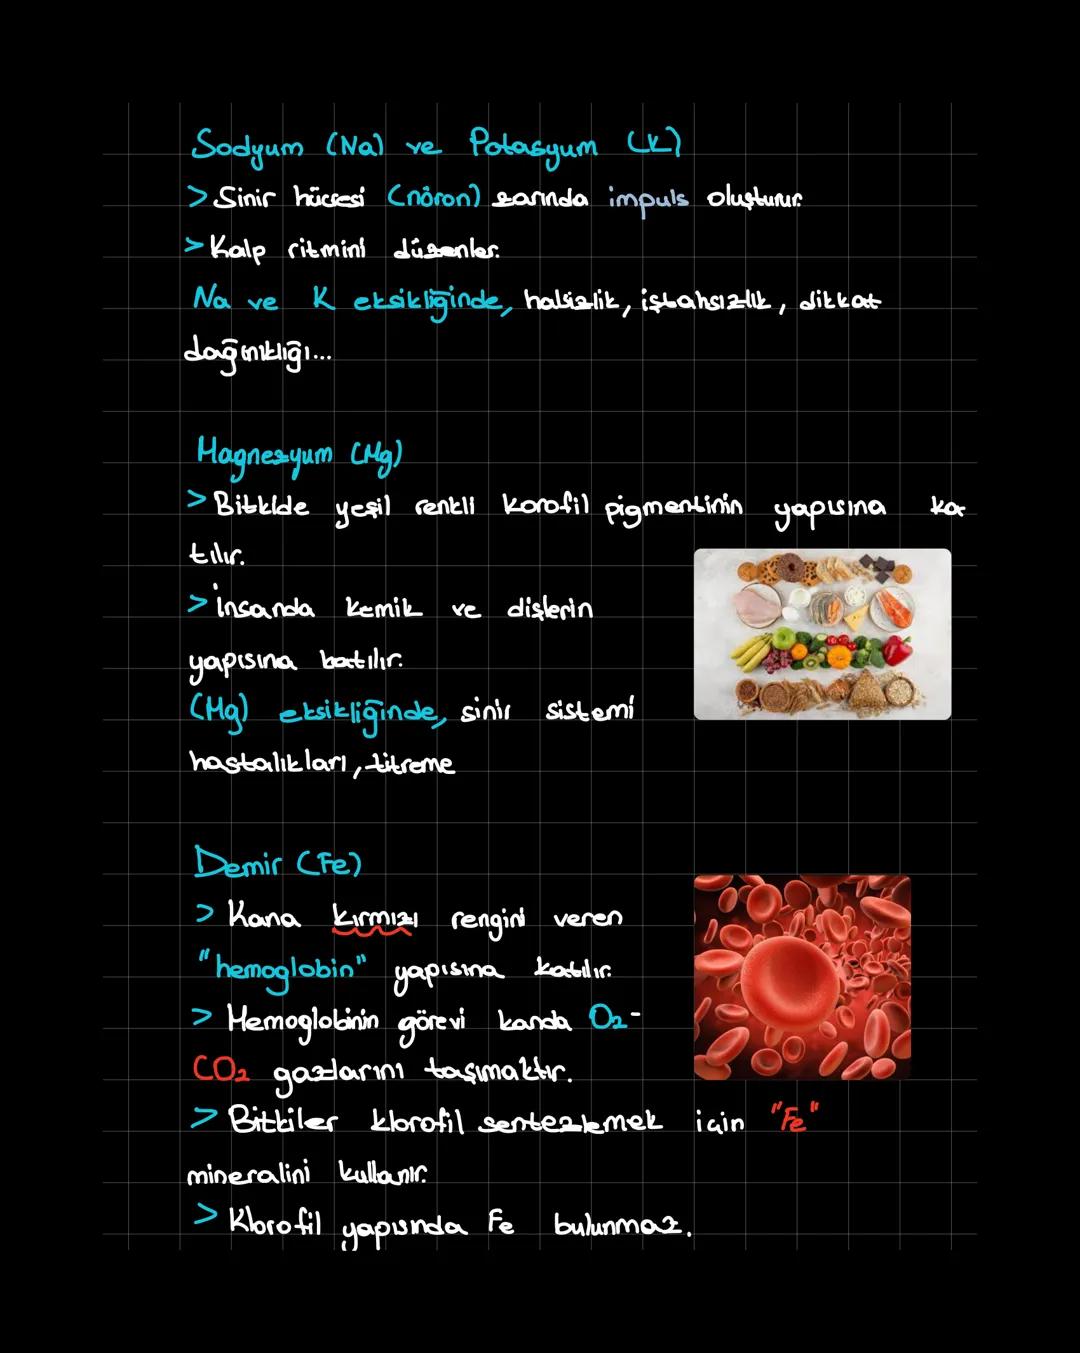 Sodyum (Na) ve Potasyum (K)
> Sinir hücresi (nöron) zarında impuls oluşturur.
> Kalp ritmini düzenler.
Na ve K eksikliğinde, halsizlik, iştahsızlık, dikkat
dağınıklığı...
Magnezyum (Mg)
> Bitkide yeşil renkli korofil pigmentinin yapısına ka
tılır.
> İnsanda kemik ve dişlerin
yapısına katılır.
(Mg) eksikliğinde, sinir sistemi
hastalıkları, titreme
Demir (Fe)
> Kana kırmızı rengini veren
"hemoglobin" yapısına katılır.
> Hemoglobinin görevi kanda O₂-
CO₂ gazlarını taşımaktır.
> Bitkiler klorofil sentezlemek için "Fe"
mineralini kullanır.
> Klorofil yapısında Fe bulunmaz.